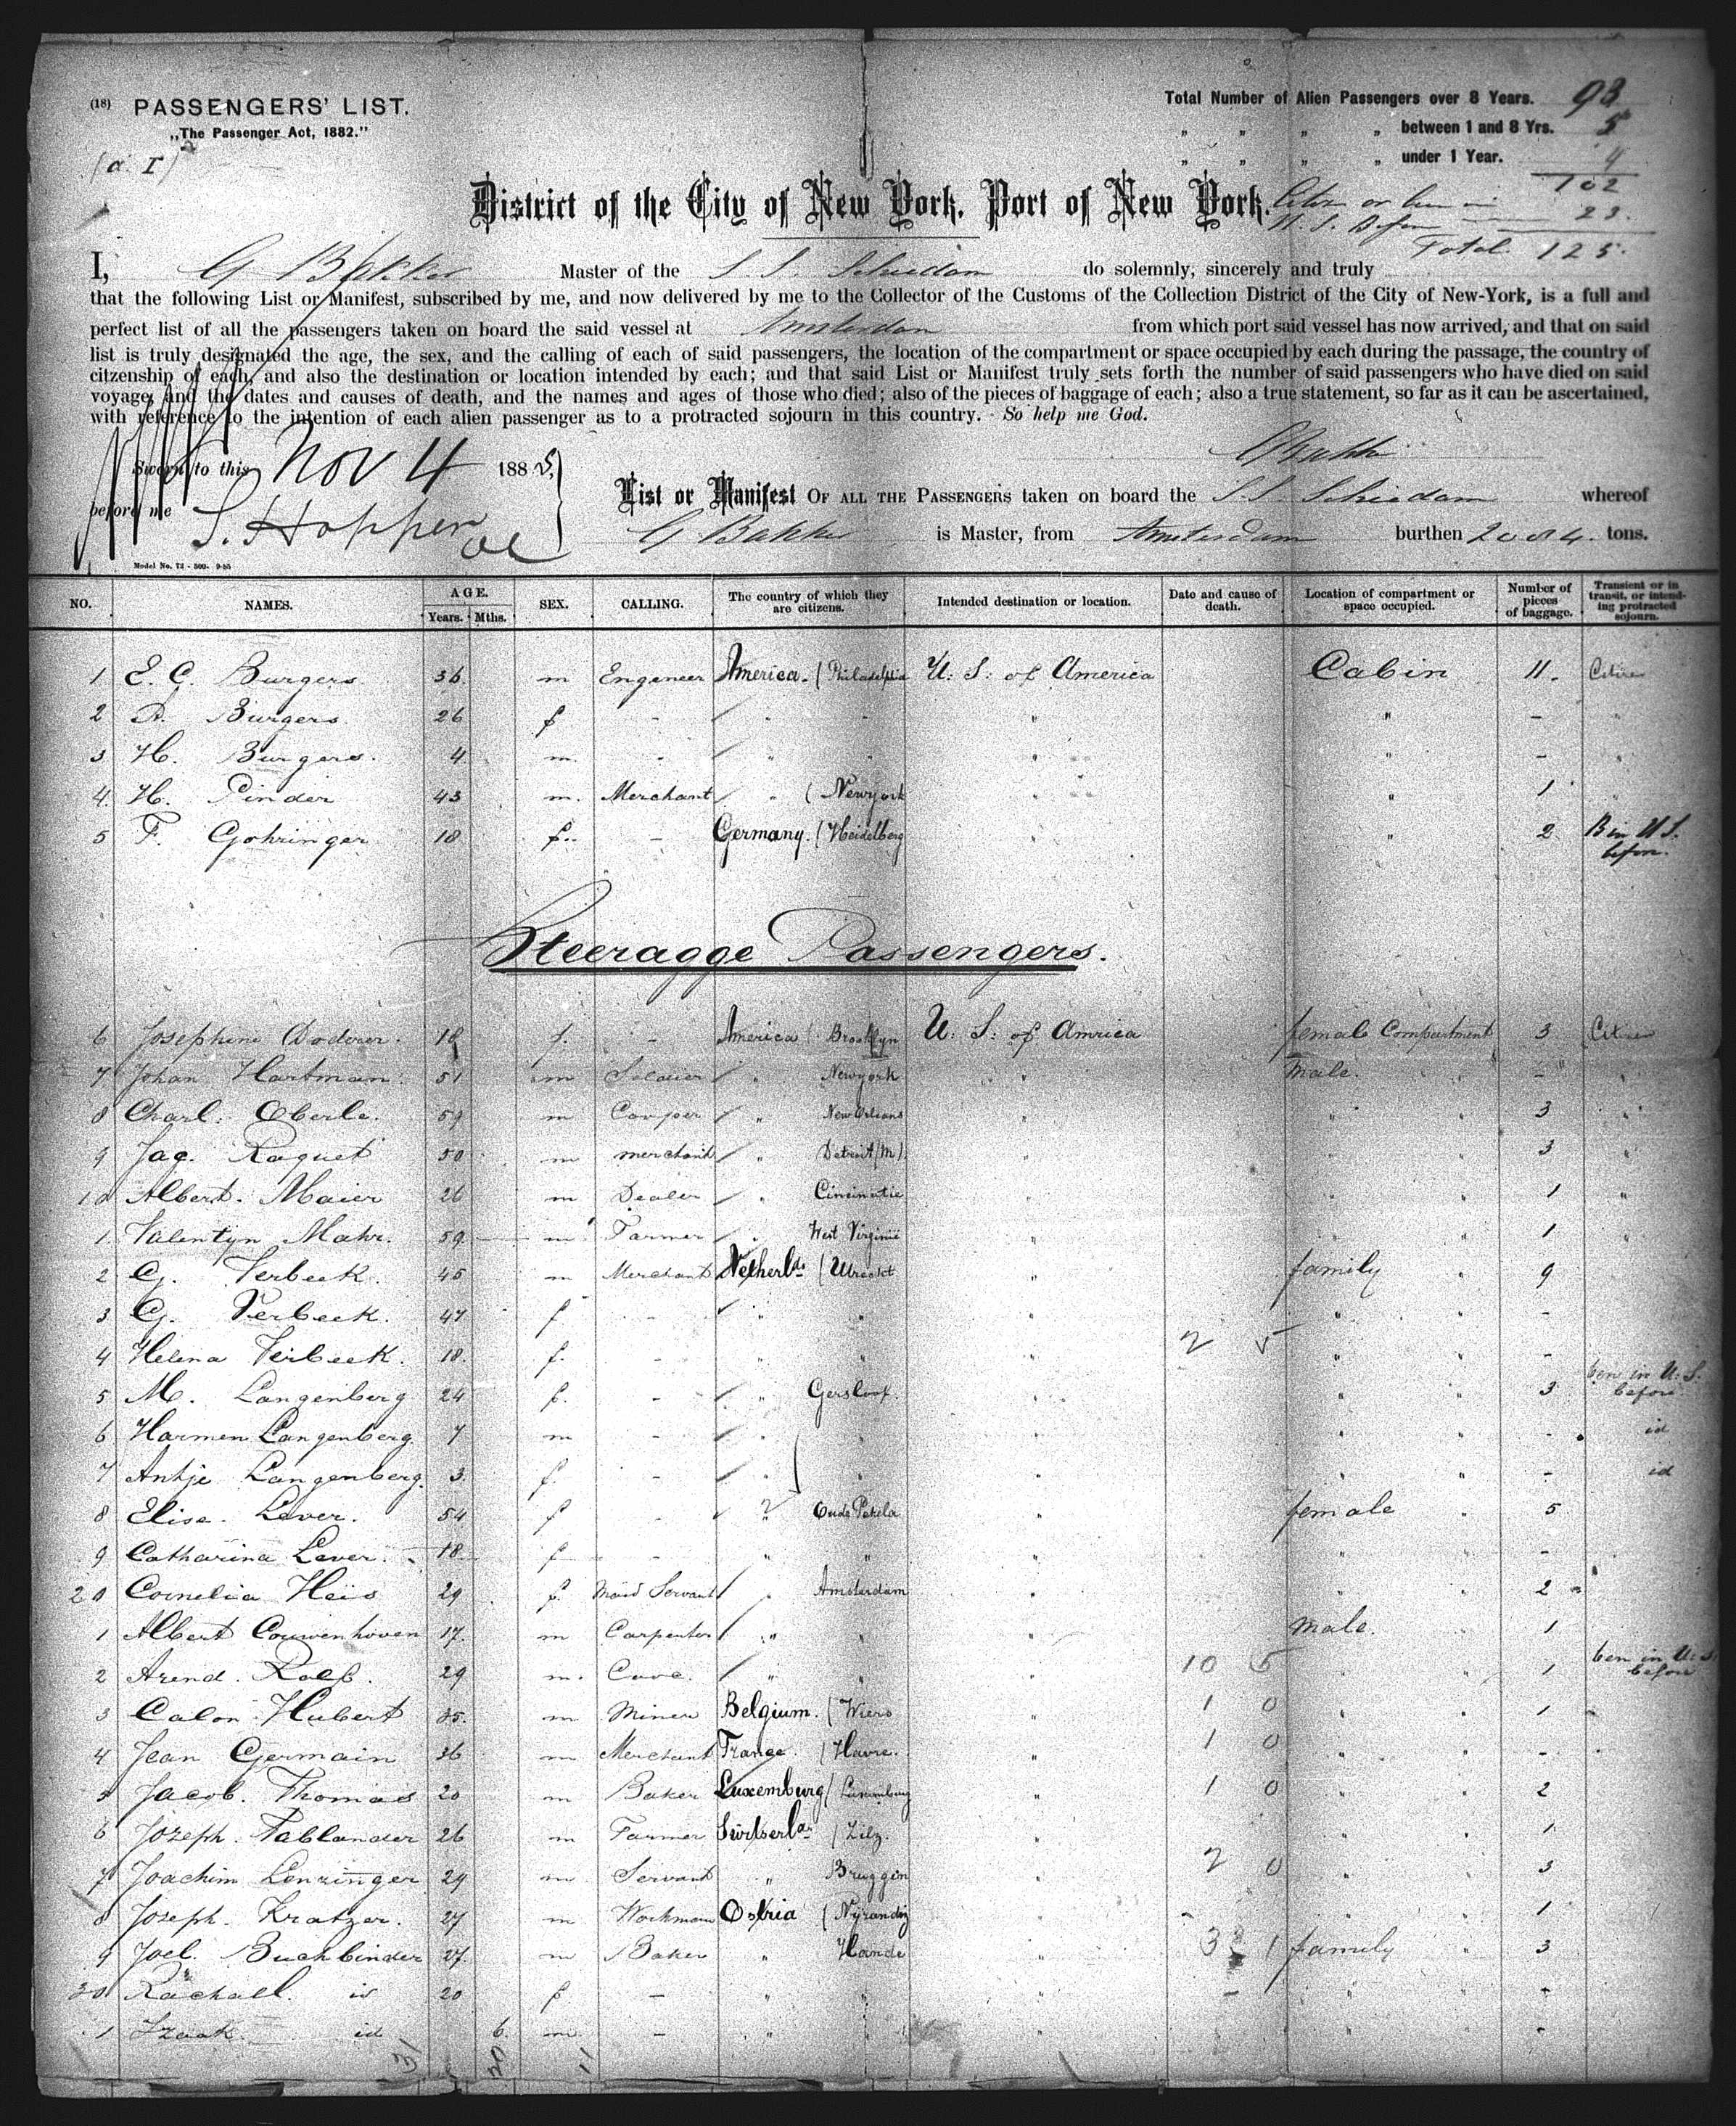 (18) PASSENGERS' LIST.
„The Passenger Act, 1882."
Total Number of Alien Passengers over 8 Years. 93
„ „ „ „ between 1 and 8 Yrs. 5
„ „ „ „ under 1 Year. 4
102
23.
Total 125.
District of the City of New York, Port of New York.
I, G Bakker Master of the S. S. Schiedam do solemnly, sincerely and truly
that the following List or Manifest, subscribed by me, and now delivered by me to the Collector of the Customs of the Collection District of the City of New-York, is a full and
perfect list of all the passengers taken on board the said vessel at Amsterdam from which port said vessel has now arrived, and that on said
list is truly designated the age, the sex, and the calling of each of said passengers, the location of the compartment or space occupied by each during the passage, the country of
citzenship of each, and also the destination or location intended by each; and that said List or Manifest truly sets forth the number of said passengers who have died on said
voyage, and the dates and causes of death, and the names and ages of those who died; also of the pieces of baggage of each; also a true statement, so far as it can be ascertained,
with reference to the intention of each alien passenger as to a protracted sojourn in this country. So help me God.
GBakker
Sworn to this Nov 4 1885
before me S. Hopper
List or Manifest OF ALL THE PASSENGERS taken on board the S. S. Schiedam whereof
G Bakker is Master, from Amsterdam burthen 2084. tons.
Model No. 72 - 500- 9-85
NO. NAMES. AGE. Years. Mths. SEX. CALLING. The country of which they are citizens. Intended destination or location. Date and cause of death. Location of compartment or space occupied. Number of pieces of baggage. Transient or in transit, or intending protracted sojourn.
1 E. C. Burgers 36. m Engeneer America. (Philadelphia U: S: of America Cabin 11. Citizen
2 A. Burgers 26 f - " " " -
3 H. Burgers. 4. m. - " " " -
4. H. Pinder 43 m. Merchant " (Newyork " " 1
5 F. Gohringer 18 f. - Germany. (Heidelberg " " 2 B in U S. before.
Steeragge Passengers.
6 Josephine Doderer. 18 f. - America (Brooklyn U: S: of Amrica female Compartment 3 Citizen
7 Johan Hartman. 51 m " Newyork " Male. " -
8 Charl: Oberle. 59 m Cooper " New Orleans " " " 3
9 Jac. Raquet 50 m merchant " Detroit (M). " " " 3
10 Albert. Maier 26 m Dealer " Cincinatie " " " 1
1. Valentyn Mahr. 59 m Farmer " West Virginie " " " 1
2 G. Verbeek. 45 m Merchant Netherlds (Utrecht " family " 9
3 G. Verbeek. 47 f - " " " " " -
4 Helena Verbeek. 18. f. - " " " 2 5 " " -
5 M. Langenberg 24 f. - " Gersloot. " " " 3 ben in U. S. before.
6 Harmen Langenberg. 7 m - " " " " " - id
7 Antje Langenberg. 3. f. - " " " " " - id
8 Elise. Lever. 54 f - " Oude Pekela " female " 5
9 Catharina Lever. 18. f - " " " " " -
20 Cornelia Heis 29 f. Maid Servant " Amsterdam " " " 2
1 Albert Couwenhoven 17. m Carpenter " " " Male. " 1
2 Arend. 29 m. " " " 10 5 " " 1 ben in U: S: before
3 Calon Hubert 35. m Miner Belgium. (Wiers " 1 0 " " 1
4 Jean Germain 36 m Merchant France. (Havre. " 1 0 " " -
5 Jacob. Thomas 20 m Baker Luxemburg (Luxemburg " 1 0 " " 2
6 Jozeph. Tablander 26 m Farmer (Zilz. " " " 1
7 Joachim Lenzinger 29 m Servant " Bruggen " 2 0 " " 3
8 Joseph. Kratzer. 27 m Workman Ostria " " " 1
9 Joel. Buchbinder 27. m Baker " Hande " 3 1 family " 3
30 Rachall. id 20 f. - " " " " " -
1 Izaak. id 6. m - " " " " " -